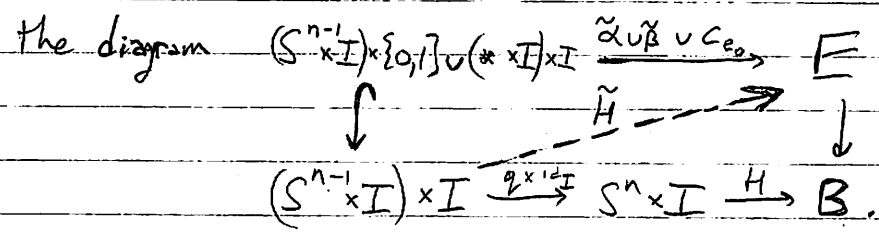 the diagram (Sⁿ⁻¹×I)×{0,1}∪(*×I)×I α̃∪β̃∪C_{e₀} E
H̃
(Sⁿ⁻¹×I)×I q×id_I Sⁿ×I H B.